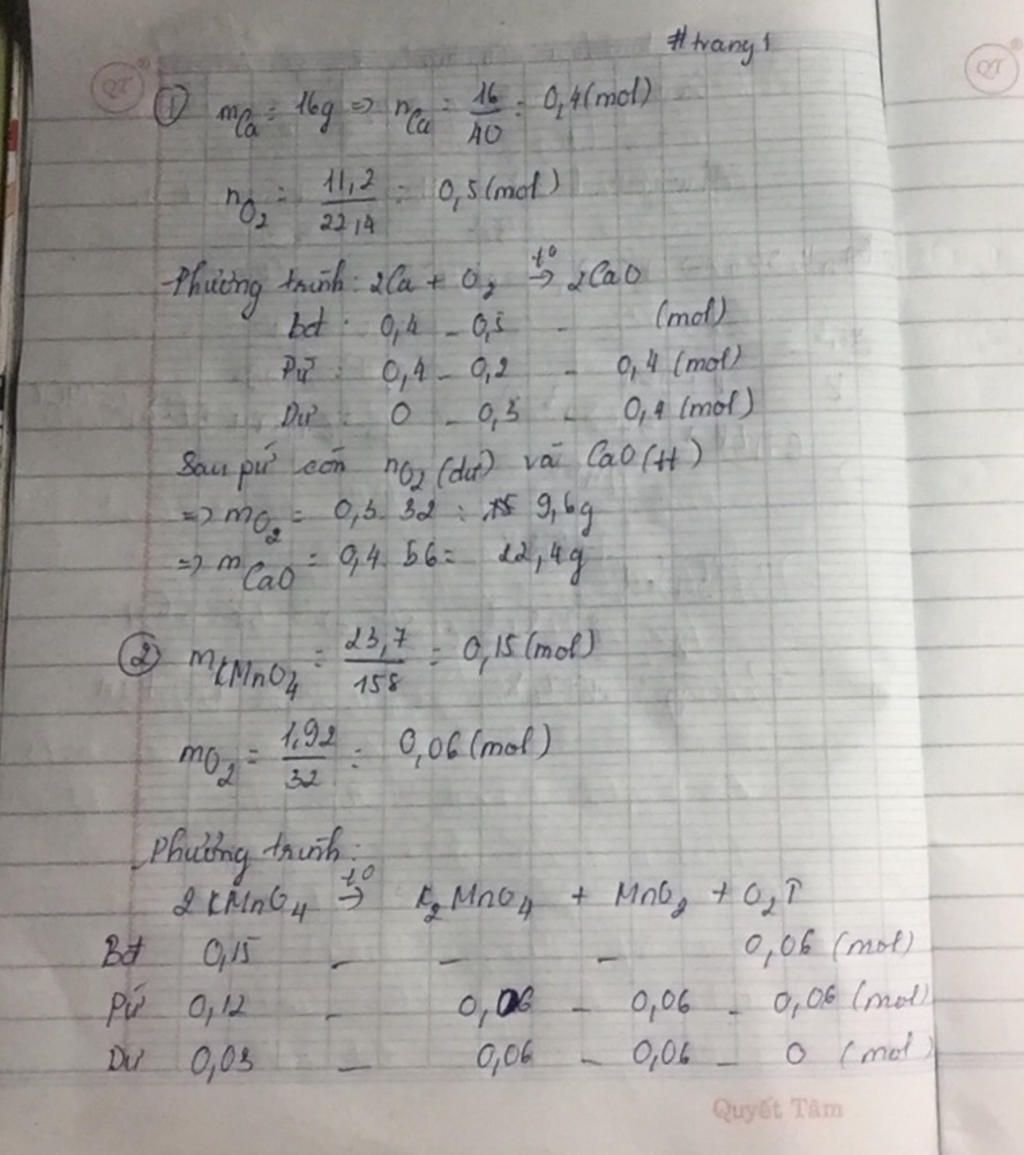 #trang 1
QT
QT
① mCa = 16g => nCa = 16/40 = 0,4(mol)
nO2 = 11,2/22,4 = 0,5(mol)
-Phương trình: 2Ca + O2 t°→ 2CaO
bđ : 0,4 - 0,5 - (mol)
Pứ : 0,4 - 0,2 - 0,4 (mol)
Dư : 0 - 0,3 - 0,4 (mol)
Sau pứ còn nO2 (dư) và CaO (H)
=> mO2 = 0,3. 32 = 9,6g
=> mCaO = 0,4. 56 = 22,4g
② mKMnO4 = 23,7/158 = 0,15(mol)
mO2 = 1,92/32 = 0,06(mol)
-Phương trình:
2KMnO4 t°→ K2MnO4 + MnO2 + O2↑
Bđ 0,15 - - - 0,06 (mol)
Pứ 0,12 - 0,06 - 0,06 - 0,06 (mol)
Dư 0,03 - 0,06 - 0,06 - 0 (mol)
Quyết Tâm